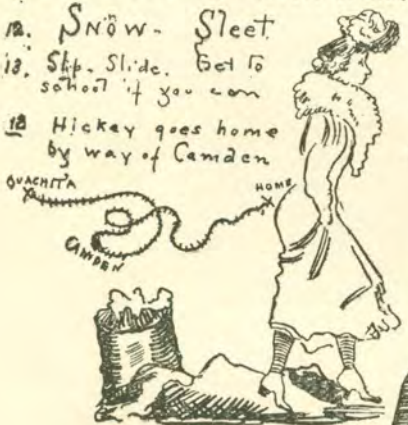 12. SNOW - Sleet
13. Slip - Slide. Get to
school if you can
18 Hickey goes home
by way of Camden
OUACHITA
HOME
CAMDEN